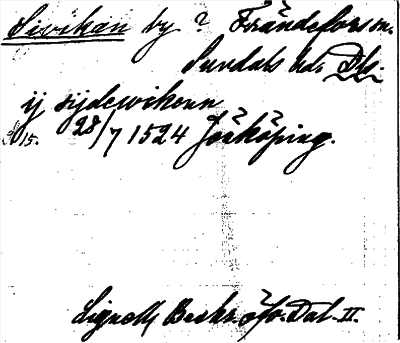 Sivikan by ? Frändefors sn.
Sundals hd. Dls.
ij sijdewikenn
15. 28/7 1524 Jönköping.
Lignell Beskr. ö/o. Dal. II.